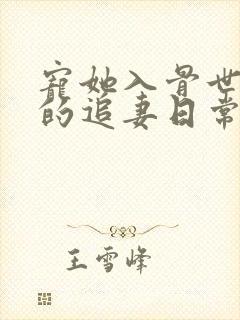 寵她入骨世
的追妻日常
王雪峰